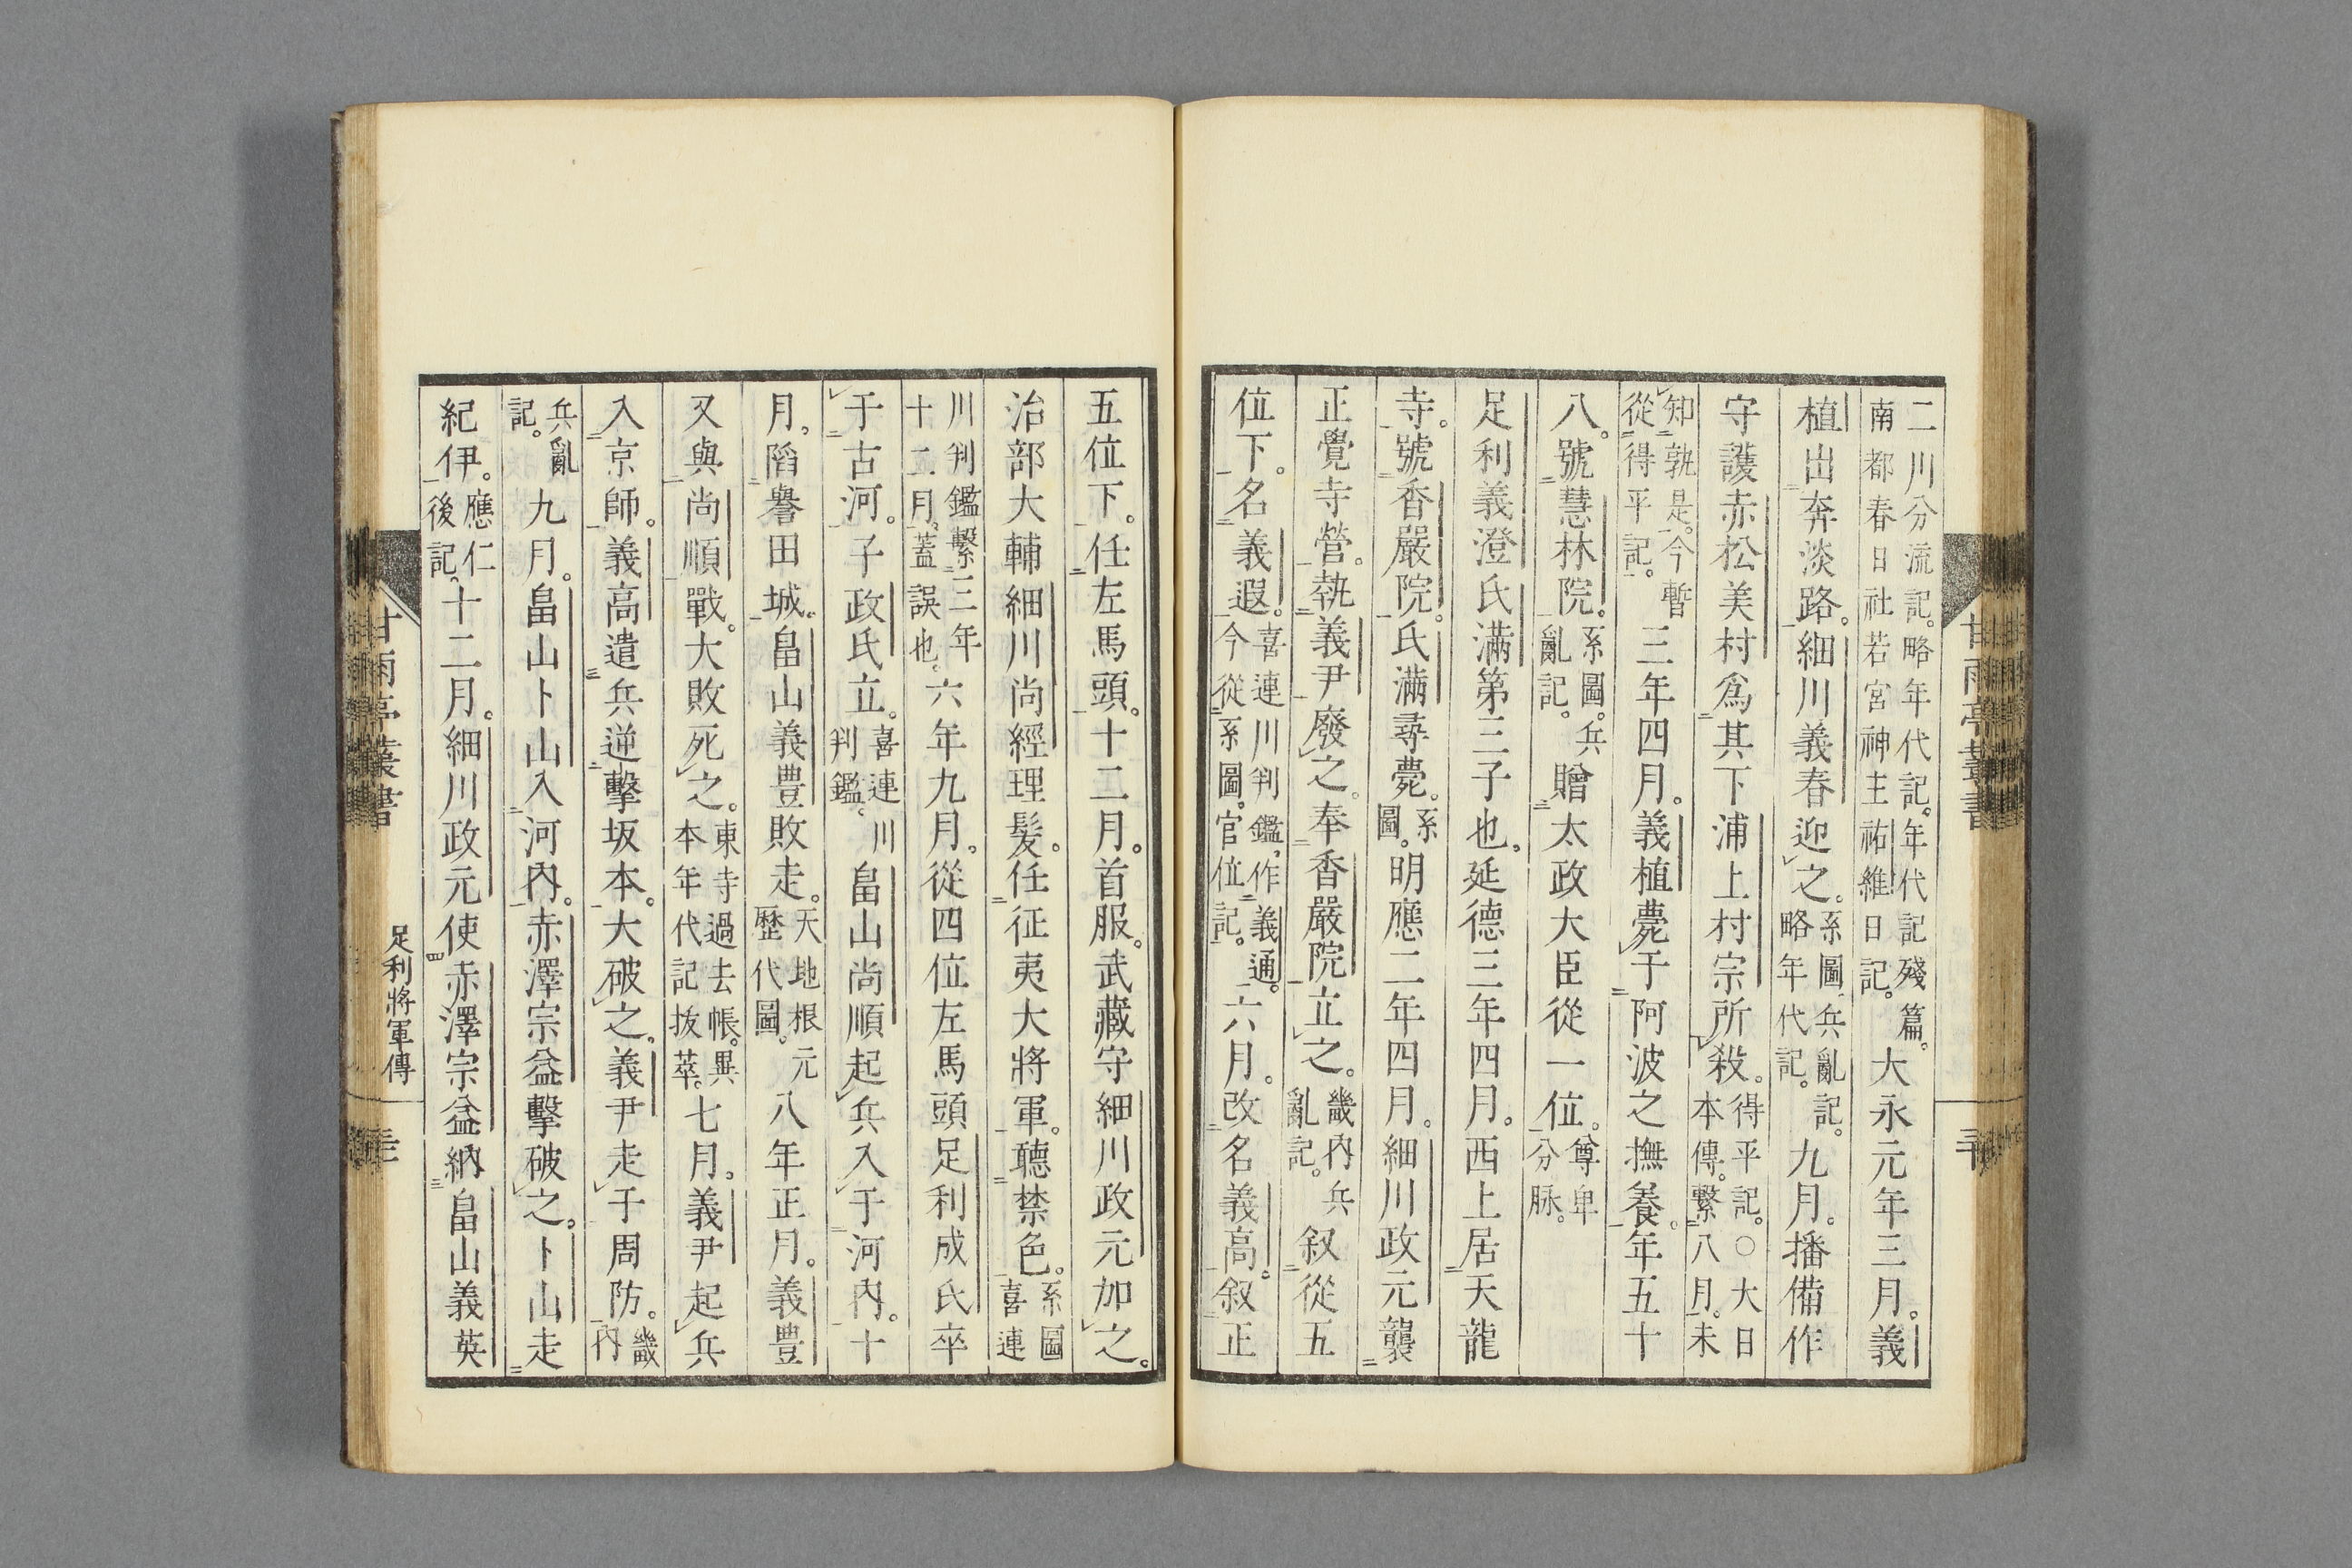 二川分流記。略年代記。年代記殘篇。
南都春日社若宮神主祐維日記。
大永元年三月。義
植出奔淡路。細川義春迎之。
系圖兵亂記。
略年代記。
九月。播備作
守護赤松美村爲其下浦上村宗所殺。
得平記。○大日
本傳。繫八月。未
知孰是。今暫
從得平記。
三年四月。義植薨于阿波之撫養。年五十
八。號慧林院。
系圖。兵
亂記。
贈太政大臣從一位。
尊卑
分脉。
足利義澄氏滿第三子也。延德三年四月。西上居天龍
寺。號香嚴院。氏滿尋薨。
系
圖。
明應二年四月。細川政元襲
正覺寺營。執義尹廢之。奉香嚴院立之。
畿内兵
亂記。
叙從五
位下。名義遐。
喜連川判鑑。作義通。
今從系圖。官位記。
六月。改名義高。叙正
甘雨亭叢書
五位下。任左馬頭。十二月。首服。武藏守細川政元加之。
治部大輔細川尚經理髮。任征夷大將軍。聽禁色。
系圖
喜連
川判鑑繫三年
十二月。蓋誤也。
六年九月。從四位左馬頭足利成氏卒
于古河。子政氏立。
喜連川
判鑑。
畠山尚順起兵入于河内。十
月。陷譽田城。畠山義豊敗走。
天地根元
歷代圖。
八年正月。義豊
又與尚順戰。大敗死之。
東寺過去帳。異
本年代記抜萃。
七月。義尹起兵
入京師。義高遣兵逆擊坂本。大破之。義尹走于周防。
畿
内
兵亂
記。
九月。畠山卜山入河内。赤澤宗益擊破之。卜山走
紀伊。
應仁
後記。
十二月。細川政元使赤澤宗益納畠山義英
甘雨亭叢書
足利將軍傳